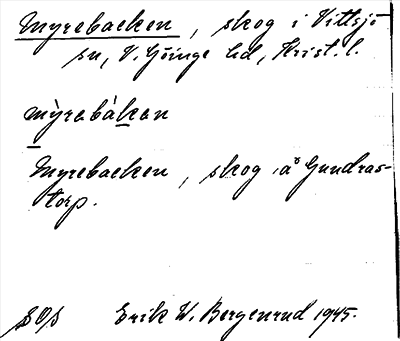 Myrebacken, skog i Vittsjö
sn, V. Göinge hd, Krist. l.
mỳrəbàkən
Myrebacken, skog å Gundras-
torp.
SOS Erik W. Bergenrud 1945.